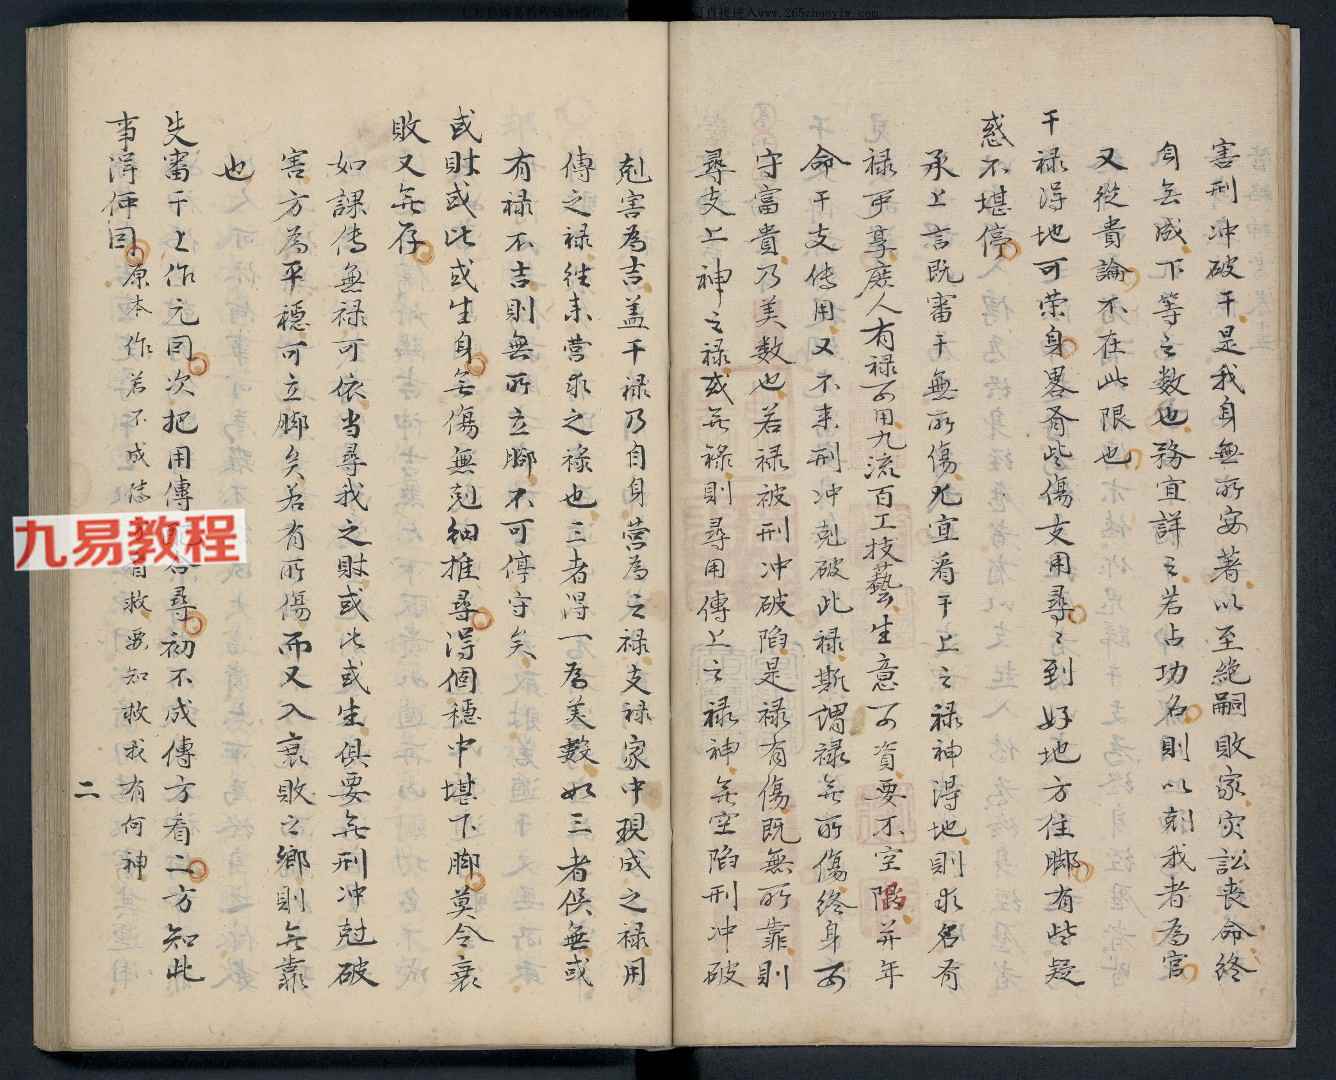 害刑冲破干是我身無所安著以至絶嗣敗家灾訟丧命終
身無成下等之數也務宜詳之若占功名則以剋我者為官
又從貴論不在此限也
干禄得地可荣身畧有些傷支用尋々到好地方住脚有些疑
惑不堪停
承上言既審干無所傷凡宜看干上之禄神得地則求名有
禄爭享庶人有禄可用九流百工技藝生意可資要不空陷并年
命干支傳用又不来刑冲剋破此禄斯謂禄無所傷終身可
守富貴乃美數也若禄被刑冲破陷是禄有傷既無所靠則
尋支上神之禄或無禄則尋用傳上之禄神無空陷刑冲破
剋害為吉盖干禄乃自身營為之禄支禄家中現成之禄用
傳之禄徃来营求之禄也三者得一為美數如三者俱無或
有禄不吉則無所立脚不可停守矣
或財或比或生身無傷無剋細推尋得個穩中堪下脚莫令衰
敗又無存
如課傳無禄可依当尋我之財或比或生俱要無刑冲尅破
害方為平穩可立脚矣若有所傷而又入衰敗之鄉則無靠
也
先審干上作元囙次把用傳尋初不成傳方看二方知此
事得何囙 原本作若不成 救要知救我有何神
二
九易教程
www.265zhouyiw.com